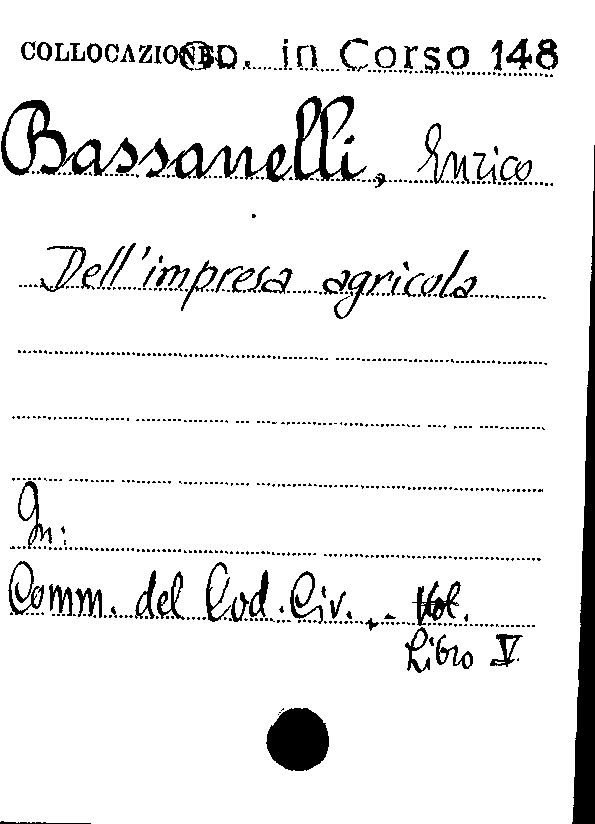 COLLOCAZIONE D. in Corso 148
Bassanelli, Enrico
Dell'impresa agricola
In:
Comm. del Cod. Civ. .- Vol.
Libro V